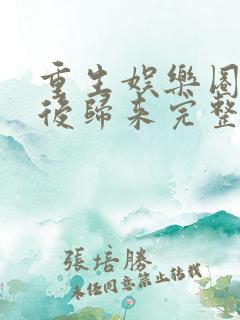 重生娛樂圈
後歸來完整
張培勝
未經同意禁止轉載